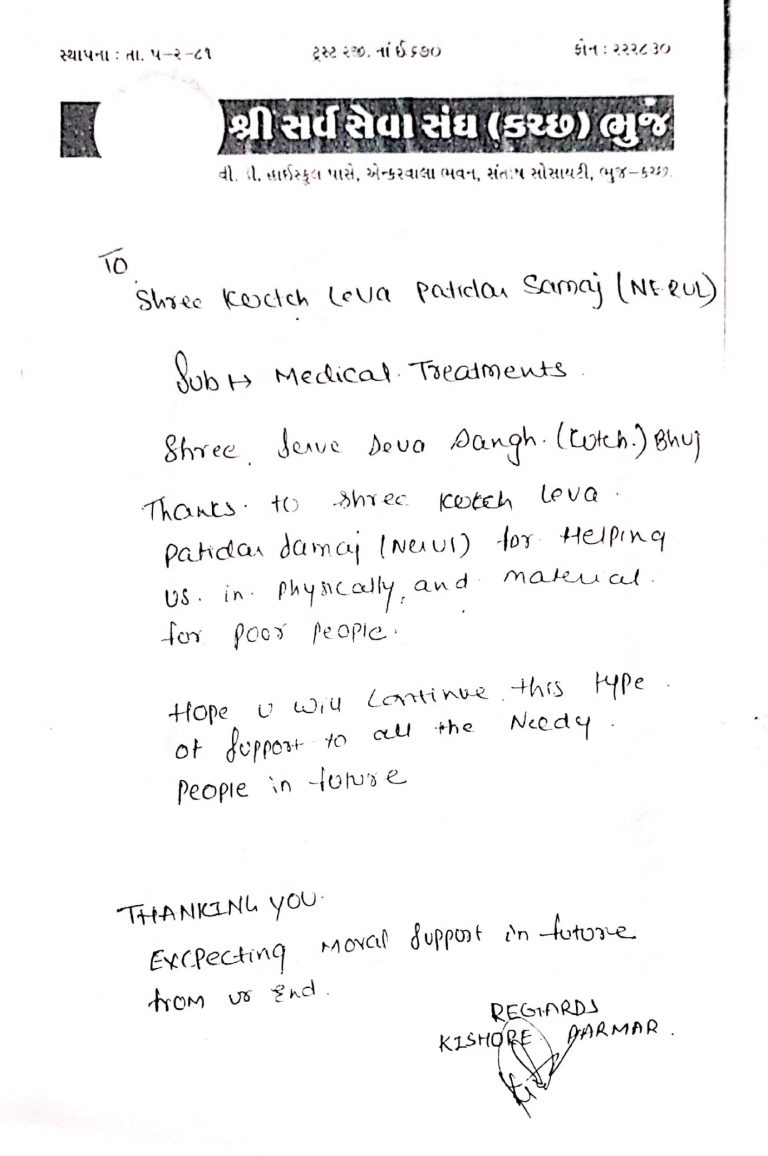 સ્થાપના : તા. ૫-૨-૮૧ ટ્રસ્ટ રજી. નાં ઈ ૬૭૦ ફોન : ૨૨૨૮૩૦
શ્રી સર્વ સેવા સંઘ (કચ્છ) ભુજ
વી. ડી. હાઈસ્કુલ પાસે, એન્કરવાલા ભવન, સંતોષ સોસાયટી, ભુજ-કચ્છ.
TO
Shree Kutch Leva Patidar Samaj (NERUL)
Sub ↦ Medical Treatments.
Shree. Serve Seva Sangh. (Kutch.) Bhuj
Thanks. to Shree Kutch Leva.
Patidar Samaj (Nerul) for Helping
us. in. Physically, and material.
for poor people.
Hope u will Continue this type.
of Support to all the Needy.
People in future
THANKING YOU.
Excpecting moral Support in future
from ur End.
REGARDS
KISHORE PARMAR.